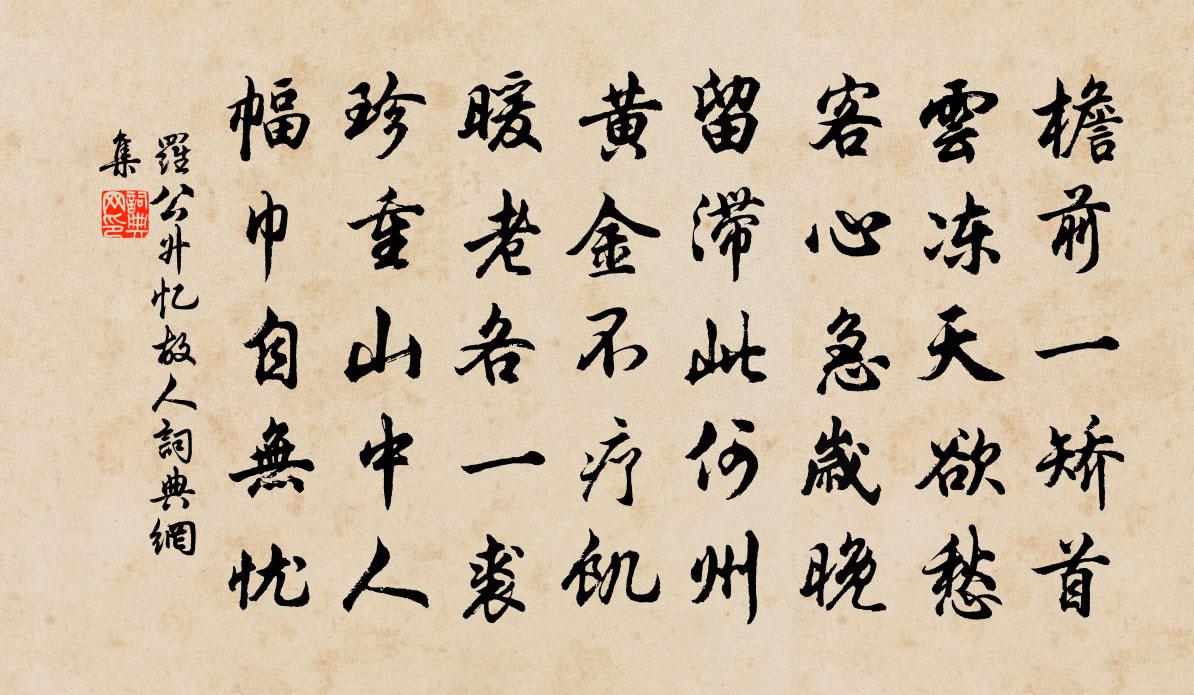 檐前一矫首
雲冻天欲愁
客心急歲晚
留滞此何州
黄金不疗飢
暖老各一裘
珍重山中人
幅巾自無忧
羅公升忆故人詞典網
集
詞典网印